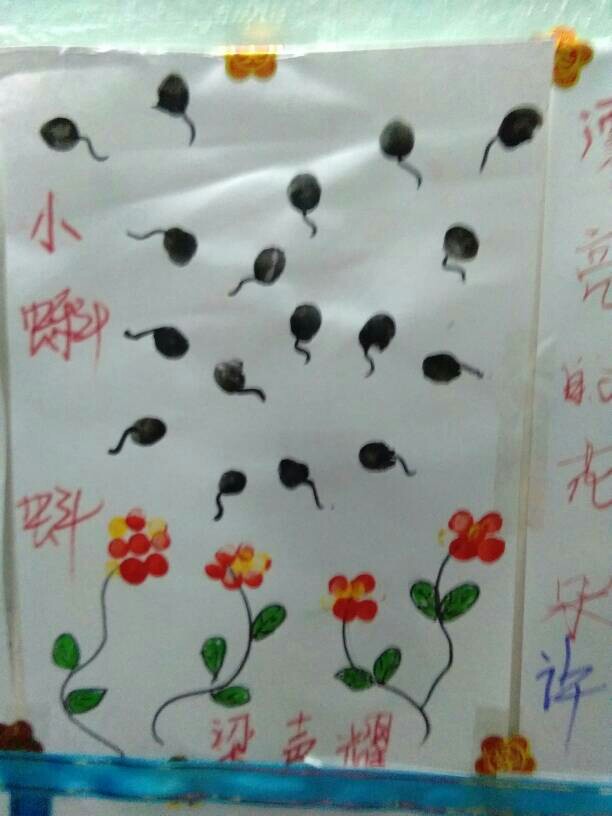 小蝌蚪
梁声耀
漂亮的花朵
许